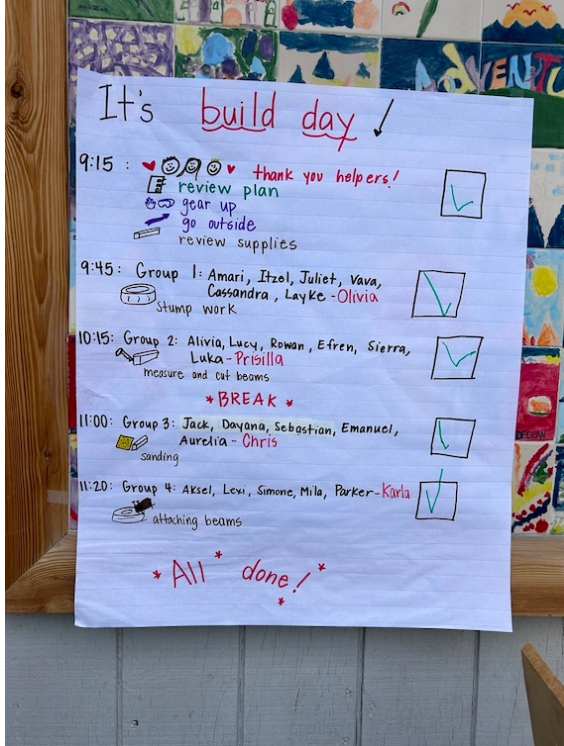 ADVENTU
It's build day
9:15 : thank you helpers!
review plan
gear up
go outside
review supplies
9:45: Group 1: Amari, Itzel, Juliet, Vava,
Cassandra, Layke - Olivia
Stump work
10:15: Group 2: Alivia, Lucy, Rowan, Efren, Sierra,
Luka - Prisilla
measure and cut beams
* BREAK *
11:00: Group 3: Jack, Dayana, Sebastian, Emanuel,
Aurelia - Chris
sanding
11:20: Group 4: Aksel, Lexi, Simone, Mila, Parker - Karla
attaching beams
* All * done! *
*
DECLAN